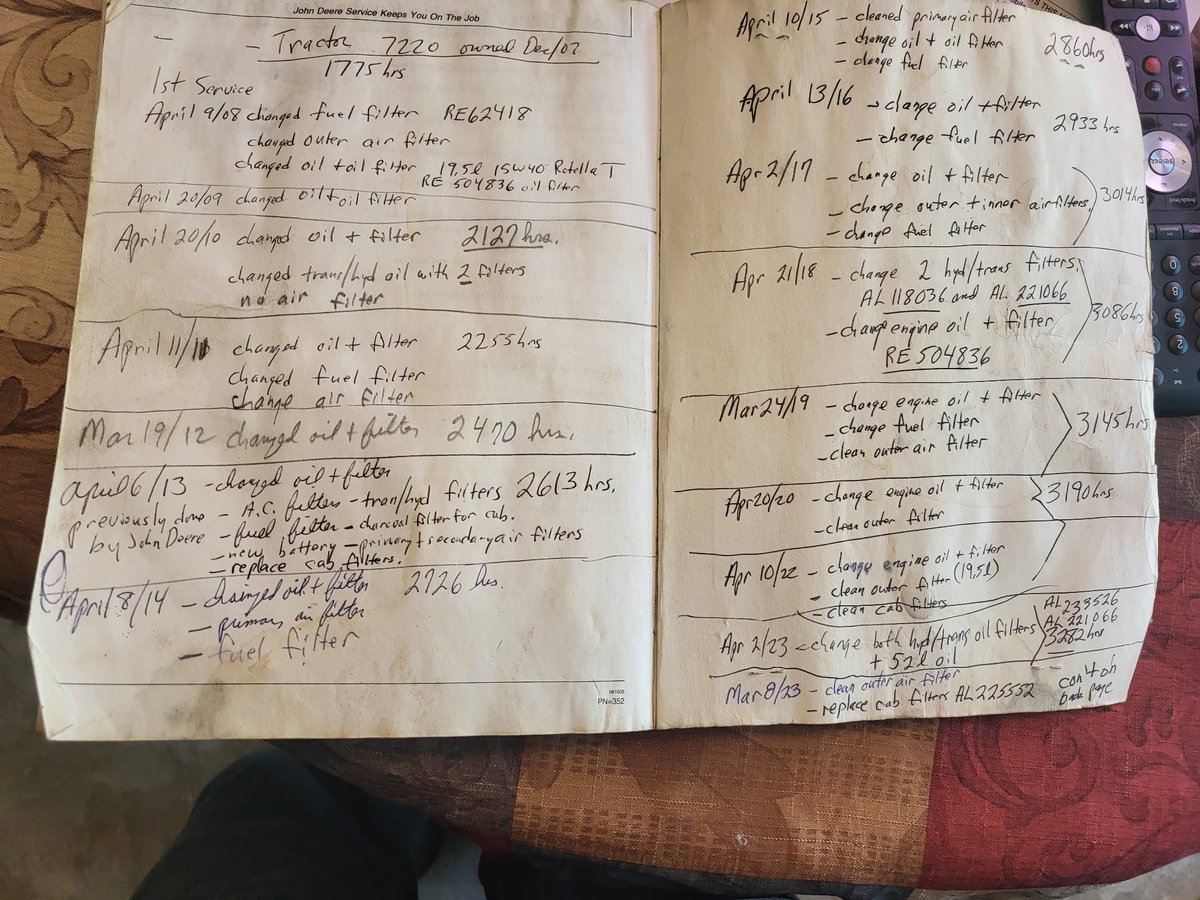 John Deere Service Keeps You On The Job
- - Tractor 7220 owned Dec/07
1775 hrs
1st Service
April 9/08 changed fuel filter RE62418
changed outer air filter
changed oil + oil filter 19,5l 15W40 Rotella T
RE 504836 oil filter
April 20/09 changed oil + oil filter
April 20/10 changed oil + filter 2127 hrs.
changed trans/hyd oil with 2 filters
no air filter
April 11/11 changed oil + filter 2255 hrs
changed fuel filter
change air filter
Mar 19/12 changed oil + filter 2470 hrs.
April 6/13 - changed oil + filter
previously done - A.C. filters - tran/hyd filters 2613 hrs.
by John Deere - fuel filter - charcoal filter for cab.
- new battery - primary + secondary air filters
- replace cab filters.
April 8/14 - changed oil + filter 2726 hrs.
- primary air filter
- fuel filter
061505
PN=352
April 10/15 - cleaned primary air filter
- change oil + oil filter 2860 hrs
- change fuel filter
April 13/16 - change oil + filter
- change fuel filter 2933 hrs
Apr 2/17 - change oil + filter
- change outer + inner air filters. 3014 hrs
- change fuel filter
Apr 21/18 - change 2 hyd/trans filters.
AL 118036 and AL 221066
- change engine oil + filter 3086 hrs
RE 504836
Mar 24/19 - change engine oil + filter
- change fuel filter 3145 hrs
- clean outer air filter
Apr 20/20 - change engine oil + filter 3190 hrs
- clean outer filter
Apr 10/22 - change engine oil + filter
- clean outer filter (19,5l)
- clean cab filters
Apr 2/23 - change both hyd/trans oil filters AL 233526
AL 221066
+ 52l oil 3282 hrs
Mar 8/23 - clean outer air filter
- replace cab filters AL 225552 con't on
back page
menu
select
back/exit
on demand